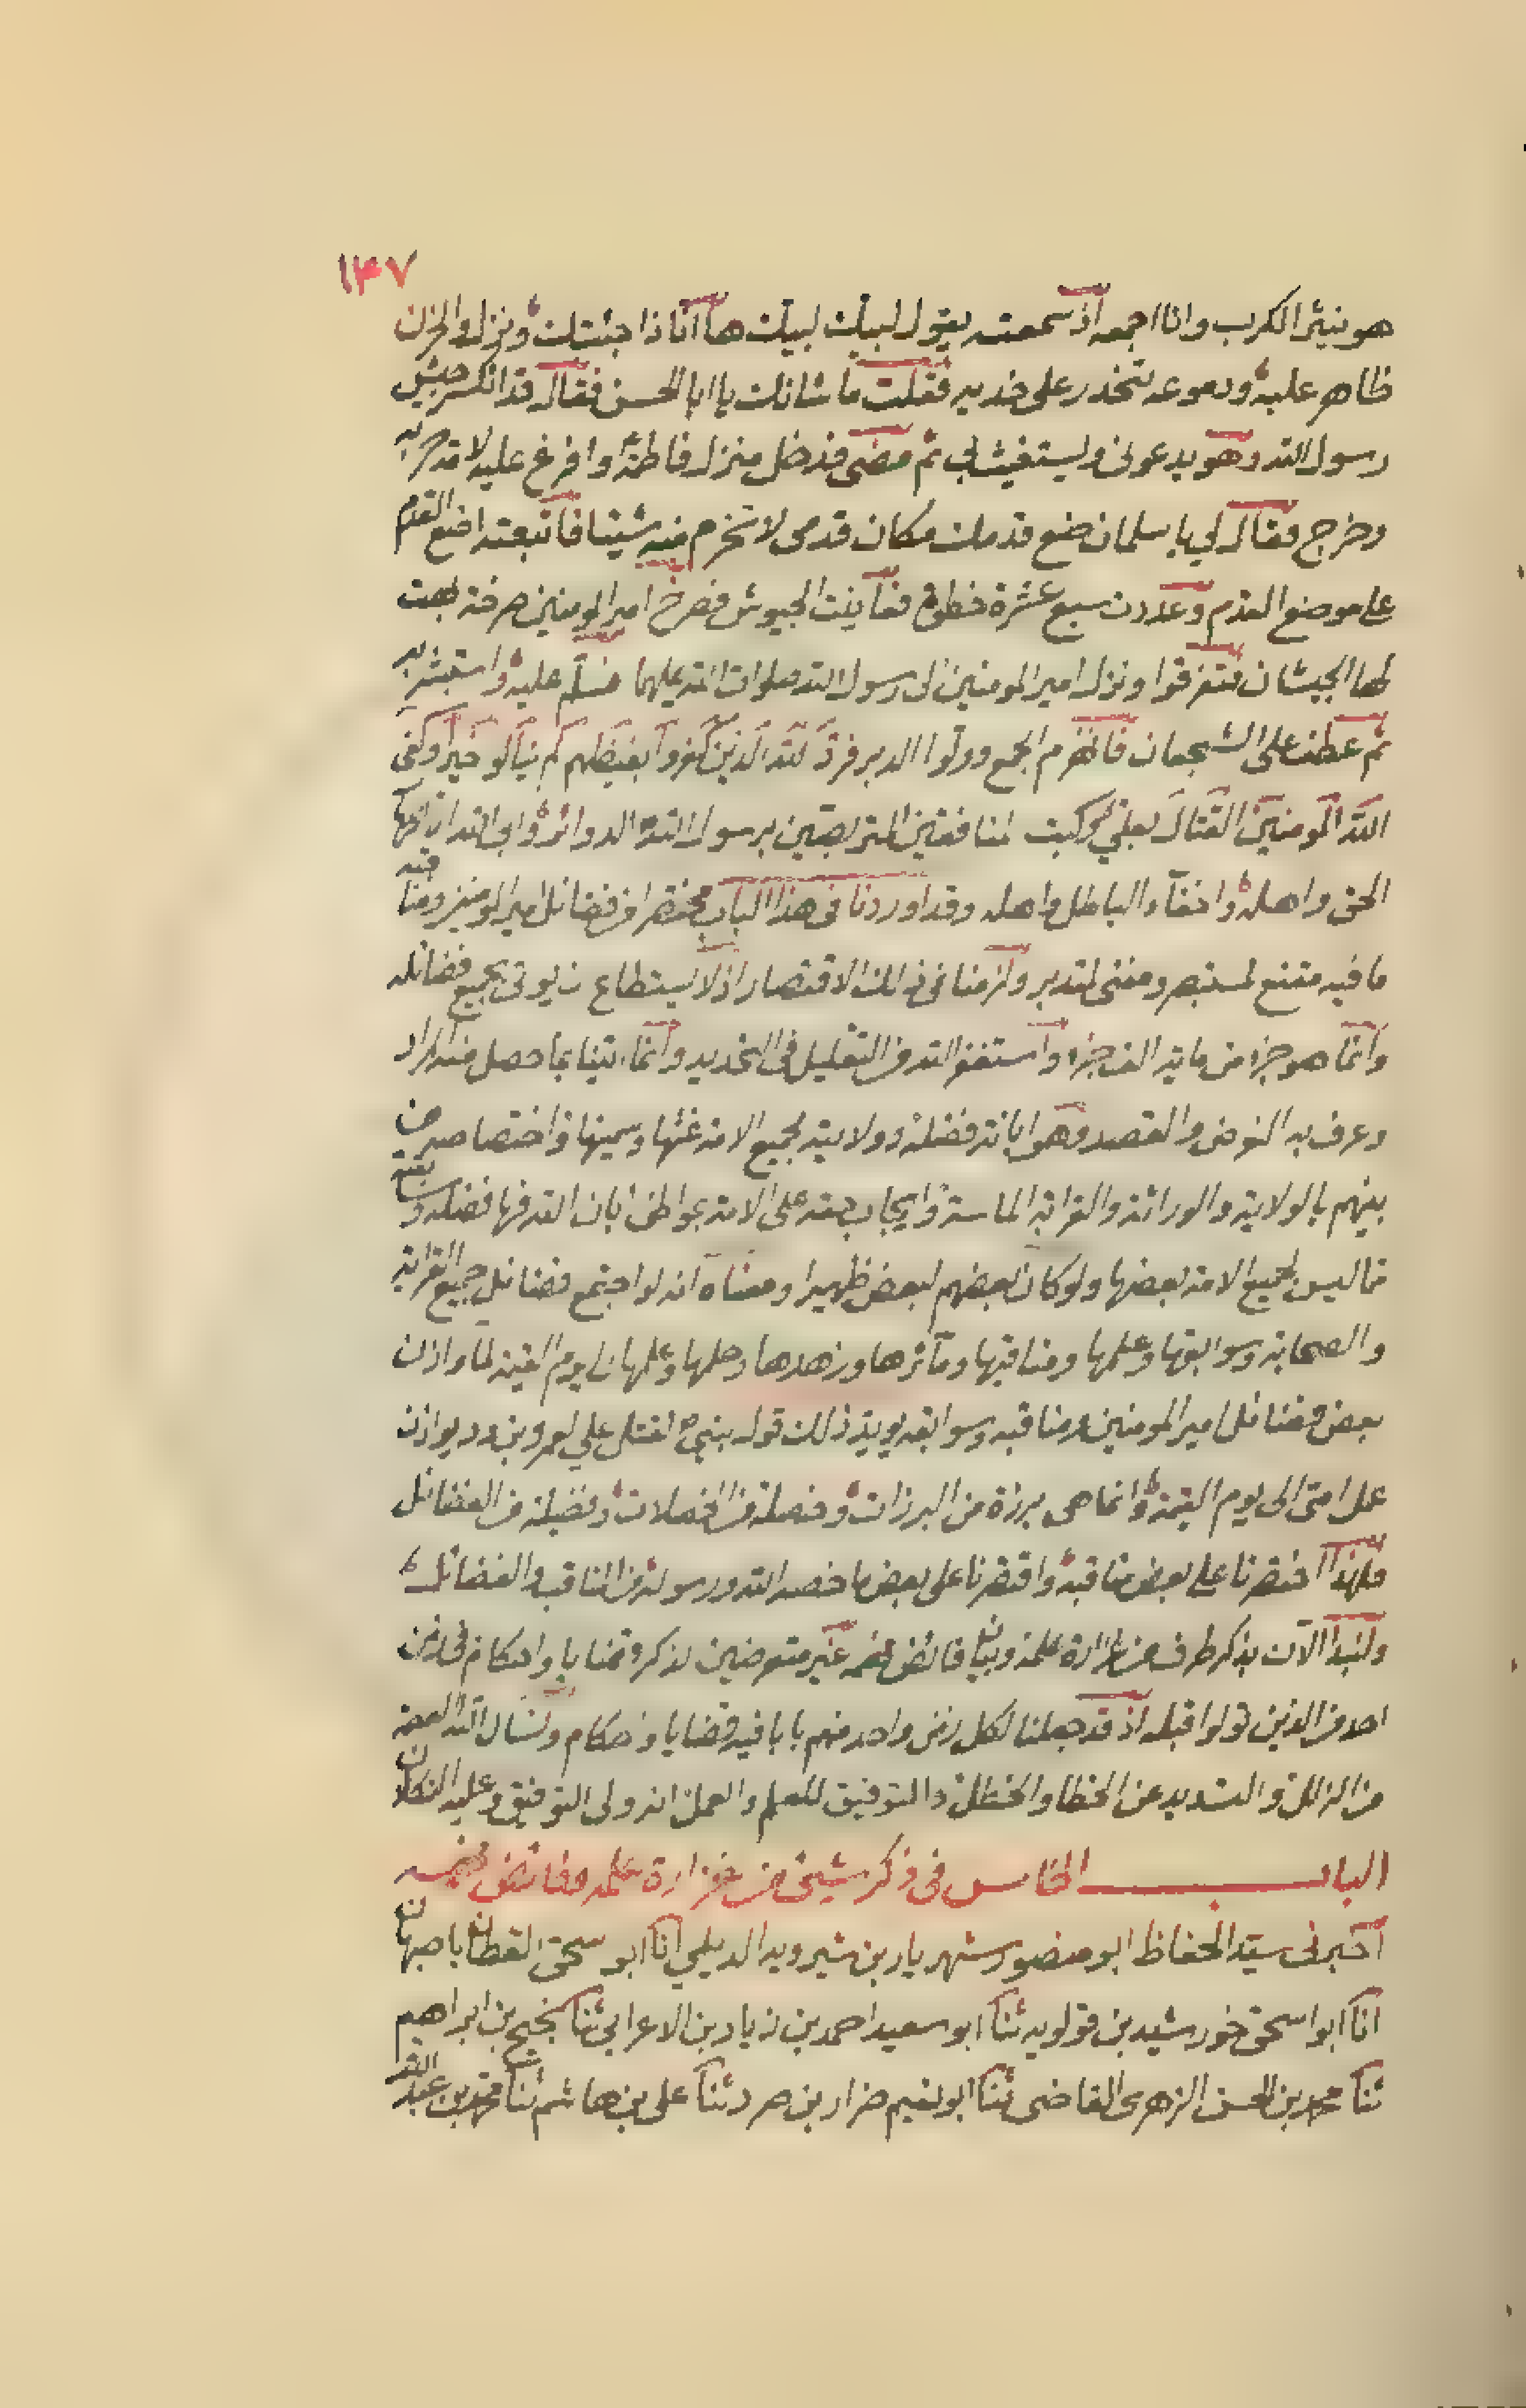 ١٣٧
هو ينثر الكرب وانا اجمعه اذ سمعته يقول لبيك لبيك ها انا ذا جئتك ونزل والحزن
ظاهر عليه ودموعه تنحدر على خديه فقلت ما شانك يا ابا الحسن فقال قد انكسر جيش
رسول الله وهو يدعونى ويستغيث بى ثم مضى فدخل منزل فاطمة وافرغ عليه لامة حربه
وخرج فقال لي يا سلمان ضع قدمك مكان قدمى لا تخرم منه شيئا فاتبعته اضع القدم
على موضع القدم وعددت سبع عشرة خطوة فعاينت الجيوش فصرخ امير المومنين صرخة لهت
لها الجيشان فتفرقوا ونزل امير المومنين الى رسول الله صلوات الله عليهما فسلم عليه واستبشر به
ثم عطف على الشجعان فانهزم الجمع وولوا الدبر فرد الله الذين كفروا بغيظهم لم ينالوا خيرا وكفى
الله المومنين القتال بعلي وكبت المنافقين المتربصين برسول الله الدوائر وابى الله الا اظهار
الحق واهله واخفاء الباطل واهله وقد اوردنا فى هذا الباب مختصرا من فضائل امير المومنين ومناقبه
ما فيه مقنع لمستبصر ومغنى لمتدبر ولزمنا فى ذلك الاقتصار اذ لا يستطاع ان يوتى بجميع فضائله
وانما هو جزء من ماية الف جزء واستغفر الله من التقليل فى التحديد وانما اتينا بما حصل منه المراد
وعرف به الغرض والقصد وهو ابانة فضله وولايته لجميع الامة غثها وسمينها واختصاصه من
بينهم بالولاية والوراثة والقرابة الماسة وايجاب حقه على الامة بمواطن ابان الله فيها فضله وسابقته
مما ليس لجميع الامة بعضها ولو كان بعضهم لبعض ظهيرا ومعناه انه لو اجتمع فضائل جميع القرابة
والصحابة وسوابقها وعلمها ومناقبها ومآثرها وزهدها وحلمها وعملها الى يوم القيمة لما وازن
بعض فضائل امير المومنين ومناقبه وسوابقه يويد ذلك قوله بينى لقتل علي لعمرو بن ود يوازن
عمل امتى الى يوم القيمة وانما هى برزة من البرزات وخصلة من الخصلات وفضيلة من الفضائل
فلهذا اختصرنا على بعض مناقبه واقتصرنا على بعض ما خصه الله ورسوله من المناقب والفضائل
ولنبدأ الآن بذكر طرف من غزارة علمه وبيان فائض فهمه غير متعرضين لذكر قضايا واحكام فى زمن
احد من الذين تولوا قبله اذ قد جعلنا لكل زمن واحد منهم بابا فيه قضايا واحكام ونسال الله العصمة
من الزلل والتسديد عن الخطا والخطل والتوفيق للعلم والعمل انه ولى التوفيق وعليه التكلان
الباب الخامس فى ذكر شيئ من غزارة علمه وفائض فهمه
اخبرنى سيد الحفاظ ابو منصور شهريار بن شيرويه الديلمي انا ابو اسحق القطان باصبهان
انا ابو اسحق خورشيد بن قولويه ثنا ابو سعيد احمد بن زياد بن الاعرابى ثنا نجيح بن ابراهيم
ثنا محمد بن الحسن الزهرى القاضى ثنا ابو نعيم ضرار بن صرد ثنا على بن هاشم ثنا محمد بن عبد الله